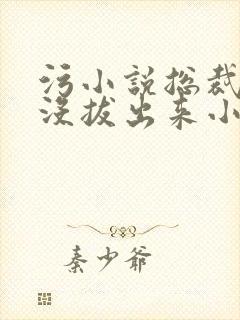 污小说总裁
没拔出来小
秦少爷